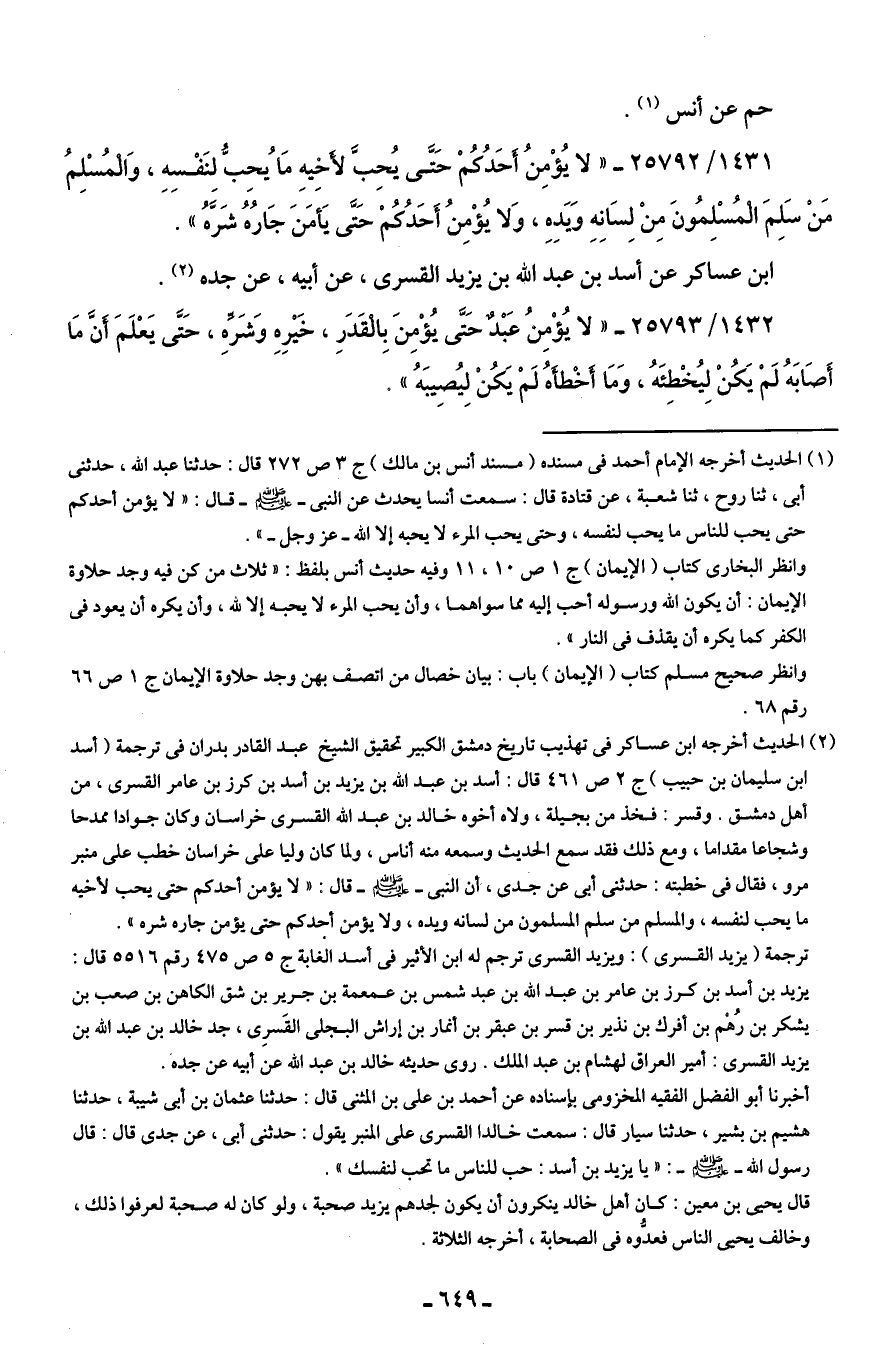 حم عن أنس (١) .
١٤٣١/ ٢٥٧٩٢ ـ « لا يُؤْمِنُ أَحَدُكُمْ حَتَّى يُحِبَّ لأَخِيهِ مَا يُحِبُّ لِنَفْسِهِ ، وَالْمُسْلِمُ
مَنْ سَلِمَ الْمُسْلِمُونَ مِنْ لِسَانِهِ وَيَدِهِ ، وَلا يُؤْمِنُ أَحَدُكُمْ حَتَّى يَأمَنَ جَارُهُ شَرَّهُ » .
ابن عساكر عن أسد بن عبد الله بن يزيد القسرى ، عن أبيه ، عن جده (٢) .
١٤٣٢/ ٢٥٧٩٣ ـ « لا يُؤْمِنُ عَبْدٌ حَتَّى يُؤْمِنَ بِالْقَدَرِ ، خَيْرِهِ وَشَرِّهِ ، حَتَّى يَعْلَمَ أَنَّ مَا
أَصَابَهُ لَمْ يَكُنْ لِيُخْطِئَهُ ، وَمَا أَخْطأَهُ لَمْ يَكُنْ لِيُصِيبَهُ » .
(١) الحديث أخرجه الإمام أحمد فى مسنده ( مسند أنس بن مالك ) ج ٣ ص ٢٧٢ قال : حدثنا عبد الله ، حدثنى
أبى ، ثنا روح ، ثنا شعبة ، عن قتادة قال : سمعت أنسا يحدث عن النبى ـ ﷺ ـ قال : « لا يؤمن أحدكم
حتى يحب للناس ما يحب لنفسه ، وحتى يحب المرء لا يحبه إلا الله ـ عز وجل ـ » .
وانظر البخارى كتاب ( الإيمان ) ج ١ ص ١٠ ، ١١ وفيه حديث أنس بلفظ : « ثلاث من كن فيه وجد حلاوة
الإيمان : أن يكون الله ورسوله أحب إليه مما سواهما ، وأن يحب المرء لا يحبه إلا لله ، وأن يكره أن يعود فى
الكفر كما يكره أن يقذف فى النار » .
وانظر صحيح مسلم كتاب ( الإيمان ) باب : بيان خصال من اتصف بهن وجد حلاوة الإيمان ج ١ ص ٦٦
رقم ٦٨ .
(٢) الحديث أخرجه ابن عساكر فى تهذيب تاريخ دمشق الكبير تحقيق الشيخ عبد القادر بدران فى ترجمة ( أسد
ابن سليمان بن حبيب ) ج ٢ ص ٤٦١ قال : أسد بن عبد الله بن يزيد بن أسد بن كرز بن عامر القسرى ، من
أهل دمشق . وقسر : فخذ من بجيلة ، ولاه أخوه خالد بن عبد الله القسرى خراسان وكان جوادا ممدحا
وشجاعا مقداما ، ومع ذلك فقد سمع الحديث وسمعه منه أناس ، ولما كان وليا على خراسان خطب على منبر
مرو ، فقال فى خطبته : حدثنى أبى عن جدى ، أن النبى ـ ﷺ ـ قال : « لا يؤمن أحدكم حتى يحب لأخيه
ما يحب لنفسه ، والمسلم من سلم المسلمون من لسانه ويده ، ولا يؤمن أحدكم حتى يؤمن جاره شره » .
ترجمة ( يزيد القسرى ) : ويزيد القسرى ترجم له ابن الأثير فى أسد الغابة ج ٥ ص ٤٧٥ رقم ٥٥١٦ قال :
يزيد بن أسد بن كرز بن عامر بن عبد الله بن عبد شمس بن عمعمة بن جرير بن شق الكاهن بن صعب بن
يشكر بن رُهْم بن أفرك بن نذير بن قسر بن عبقر بن أنمار بن إراش البجلى القَسرِى ، جد خالد بن عبد الله بن
يزيد القسرى : أمير العراق لهشام بن عبد الملك . روى حديثه خالد بن عبد الله عن أبيه عن جده .
أخبرنا أبو الفضل الفقيه المخزومى بإسناده عن أحمد بن على بن المثنى قال : حدثنا عثمان بن أبى شيبة ، حدثنا
هشيم بن بشير ، حدثنا سيار قال : سمعت خالدا القسرى على المنبر يقول : حدثنى أبى ، عن جدى قال : قال
رسول الله ـ ﷺ ـ : « يا يزيد بن أسد : حب للناس ما تحب لنفسك » .
قال يحيى بن معين : كان أهل خالد ينكرون أن يكون لجدهم يزيد صحبة ، ولو كان له صحبة لعرفوا ذلك ،
وخالف يحيى الناس فعدُّوه فى الصحابة ، أخرجه الثلاثة .
ـ ٦٤٩ ـ